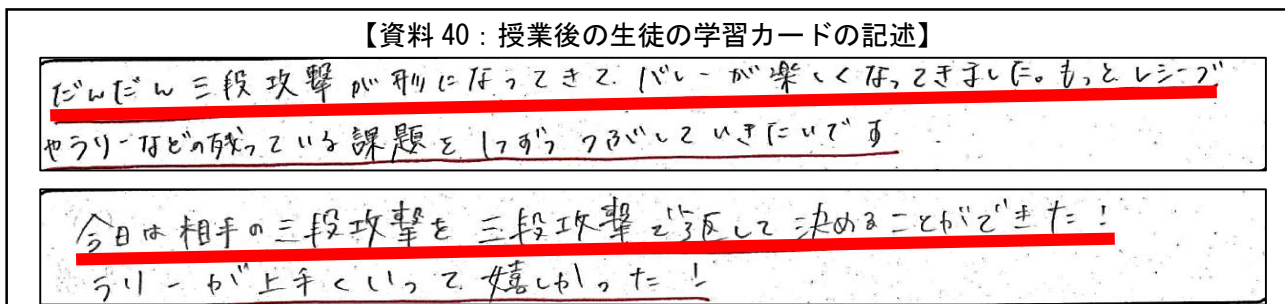 【資料 40：授業後の生徒の学習カードの記述】
だんだん三段攻撃が形になってきて、バレーが楽しくなってきました。もっとレシーブ
やラリーなどの残っている課題を1つずつつぶしていきたいです
今日は相手の三段攻撃を三段攻撃で返して決めることができた！
ラリーが上手くいって嬉しかった！